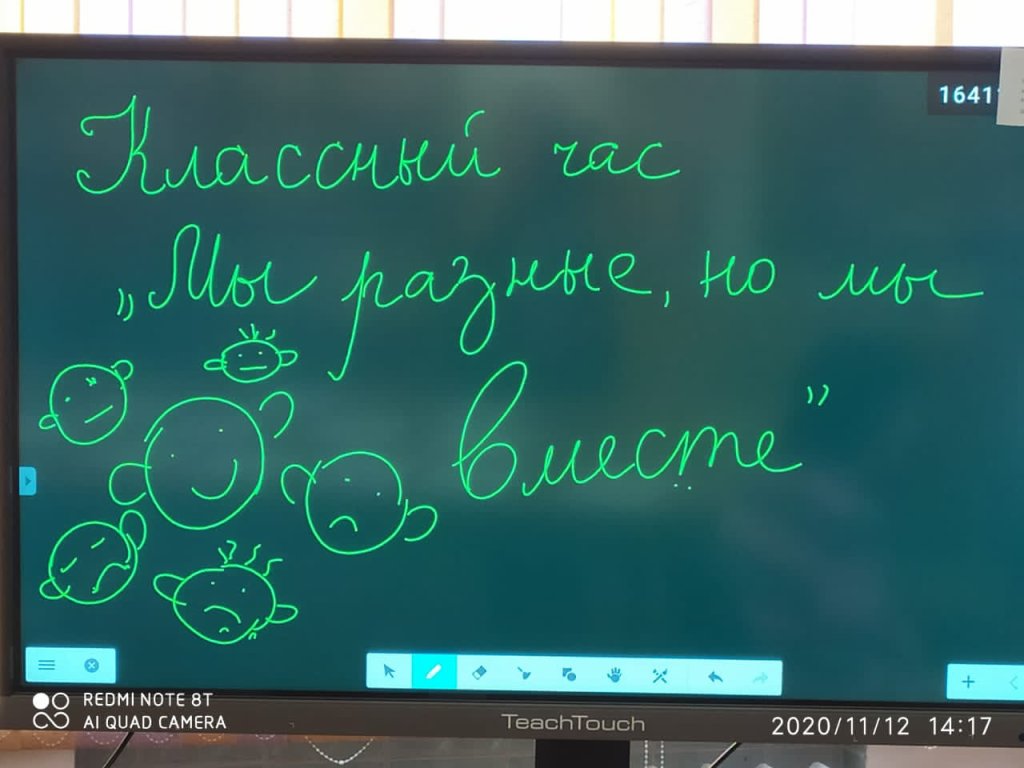 16411
Классный час
„Мы разные, но мы
вместе”
REDMI NOTE 8T
AI QUAD CAMERA
TeachTouch
2020/11/12 14:17